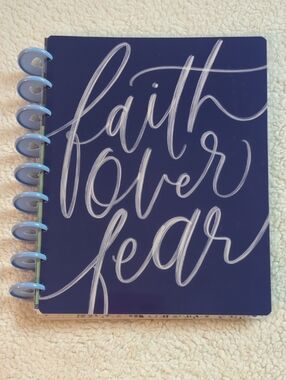 faith
over
fear